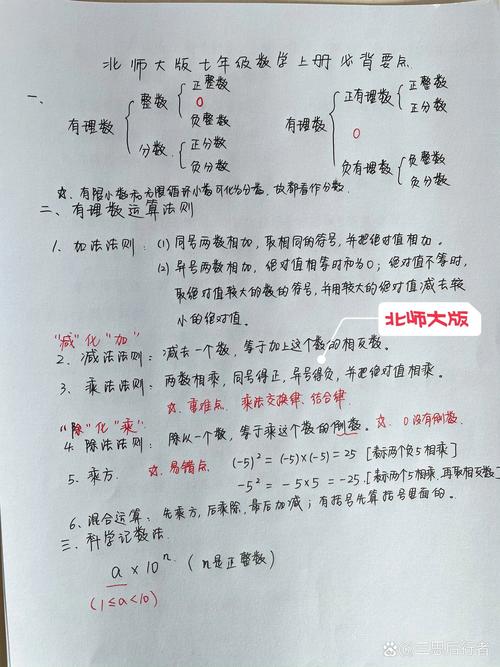 北师大版七年级数学上册必背要点
一、
有理数 { 整数 { 正整数 0 负整数
分数 { 正分数 负分数
有理数 { 正有理数 { 正整数 正分数
0
负有理数 { 负整数 负分数
☆. 有限小数和无限循环小数可化为分数, 故都看作分数.
二、有理数运算法则
1. 加法法则: (1) 同号两数相加, 取相同的符号, 并把绝对值相加。
(2) 异号两数相加, 绝对值相等时和为0; 绝对值不等时,
取绝对值较大的数的符号, 并用较大的绝对值减去较
小的绝对值。
北师大版
"减"化"加"
2. 减法法则: 减去一个数, 等于加上这个数的相反数。
3. 乘法法则: 两数相乘, 同号得正, 异号得负, 并把绝对值相乘。
☆. 重难点. 乘法交换律、结合律.
"除"化"乘"
4. 除法法则: 除以一个数, 等于乘这个数的倒数。 ☆. 0没有倒数.
5. 乘方. ☆. 易错点. (-5)² = (-5)×(-5) = 25 [表示两个负5相乘]
-5² = -5×5 = -25. [表示两个5相乘, 再取相反数]
6. 混合运算: 先乘方, 后乘除, 最后加减; 有括号先算括号里面的。
三、科学记数法.
a × 10ⁿ. (n是正整数)
(1≤a<10)
@三思后行者